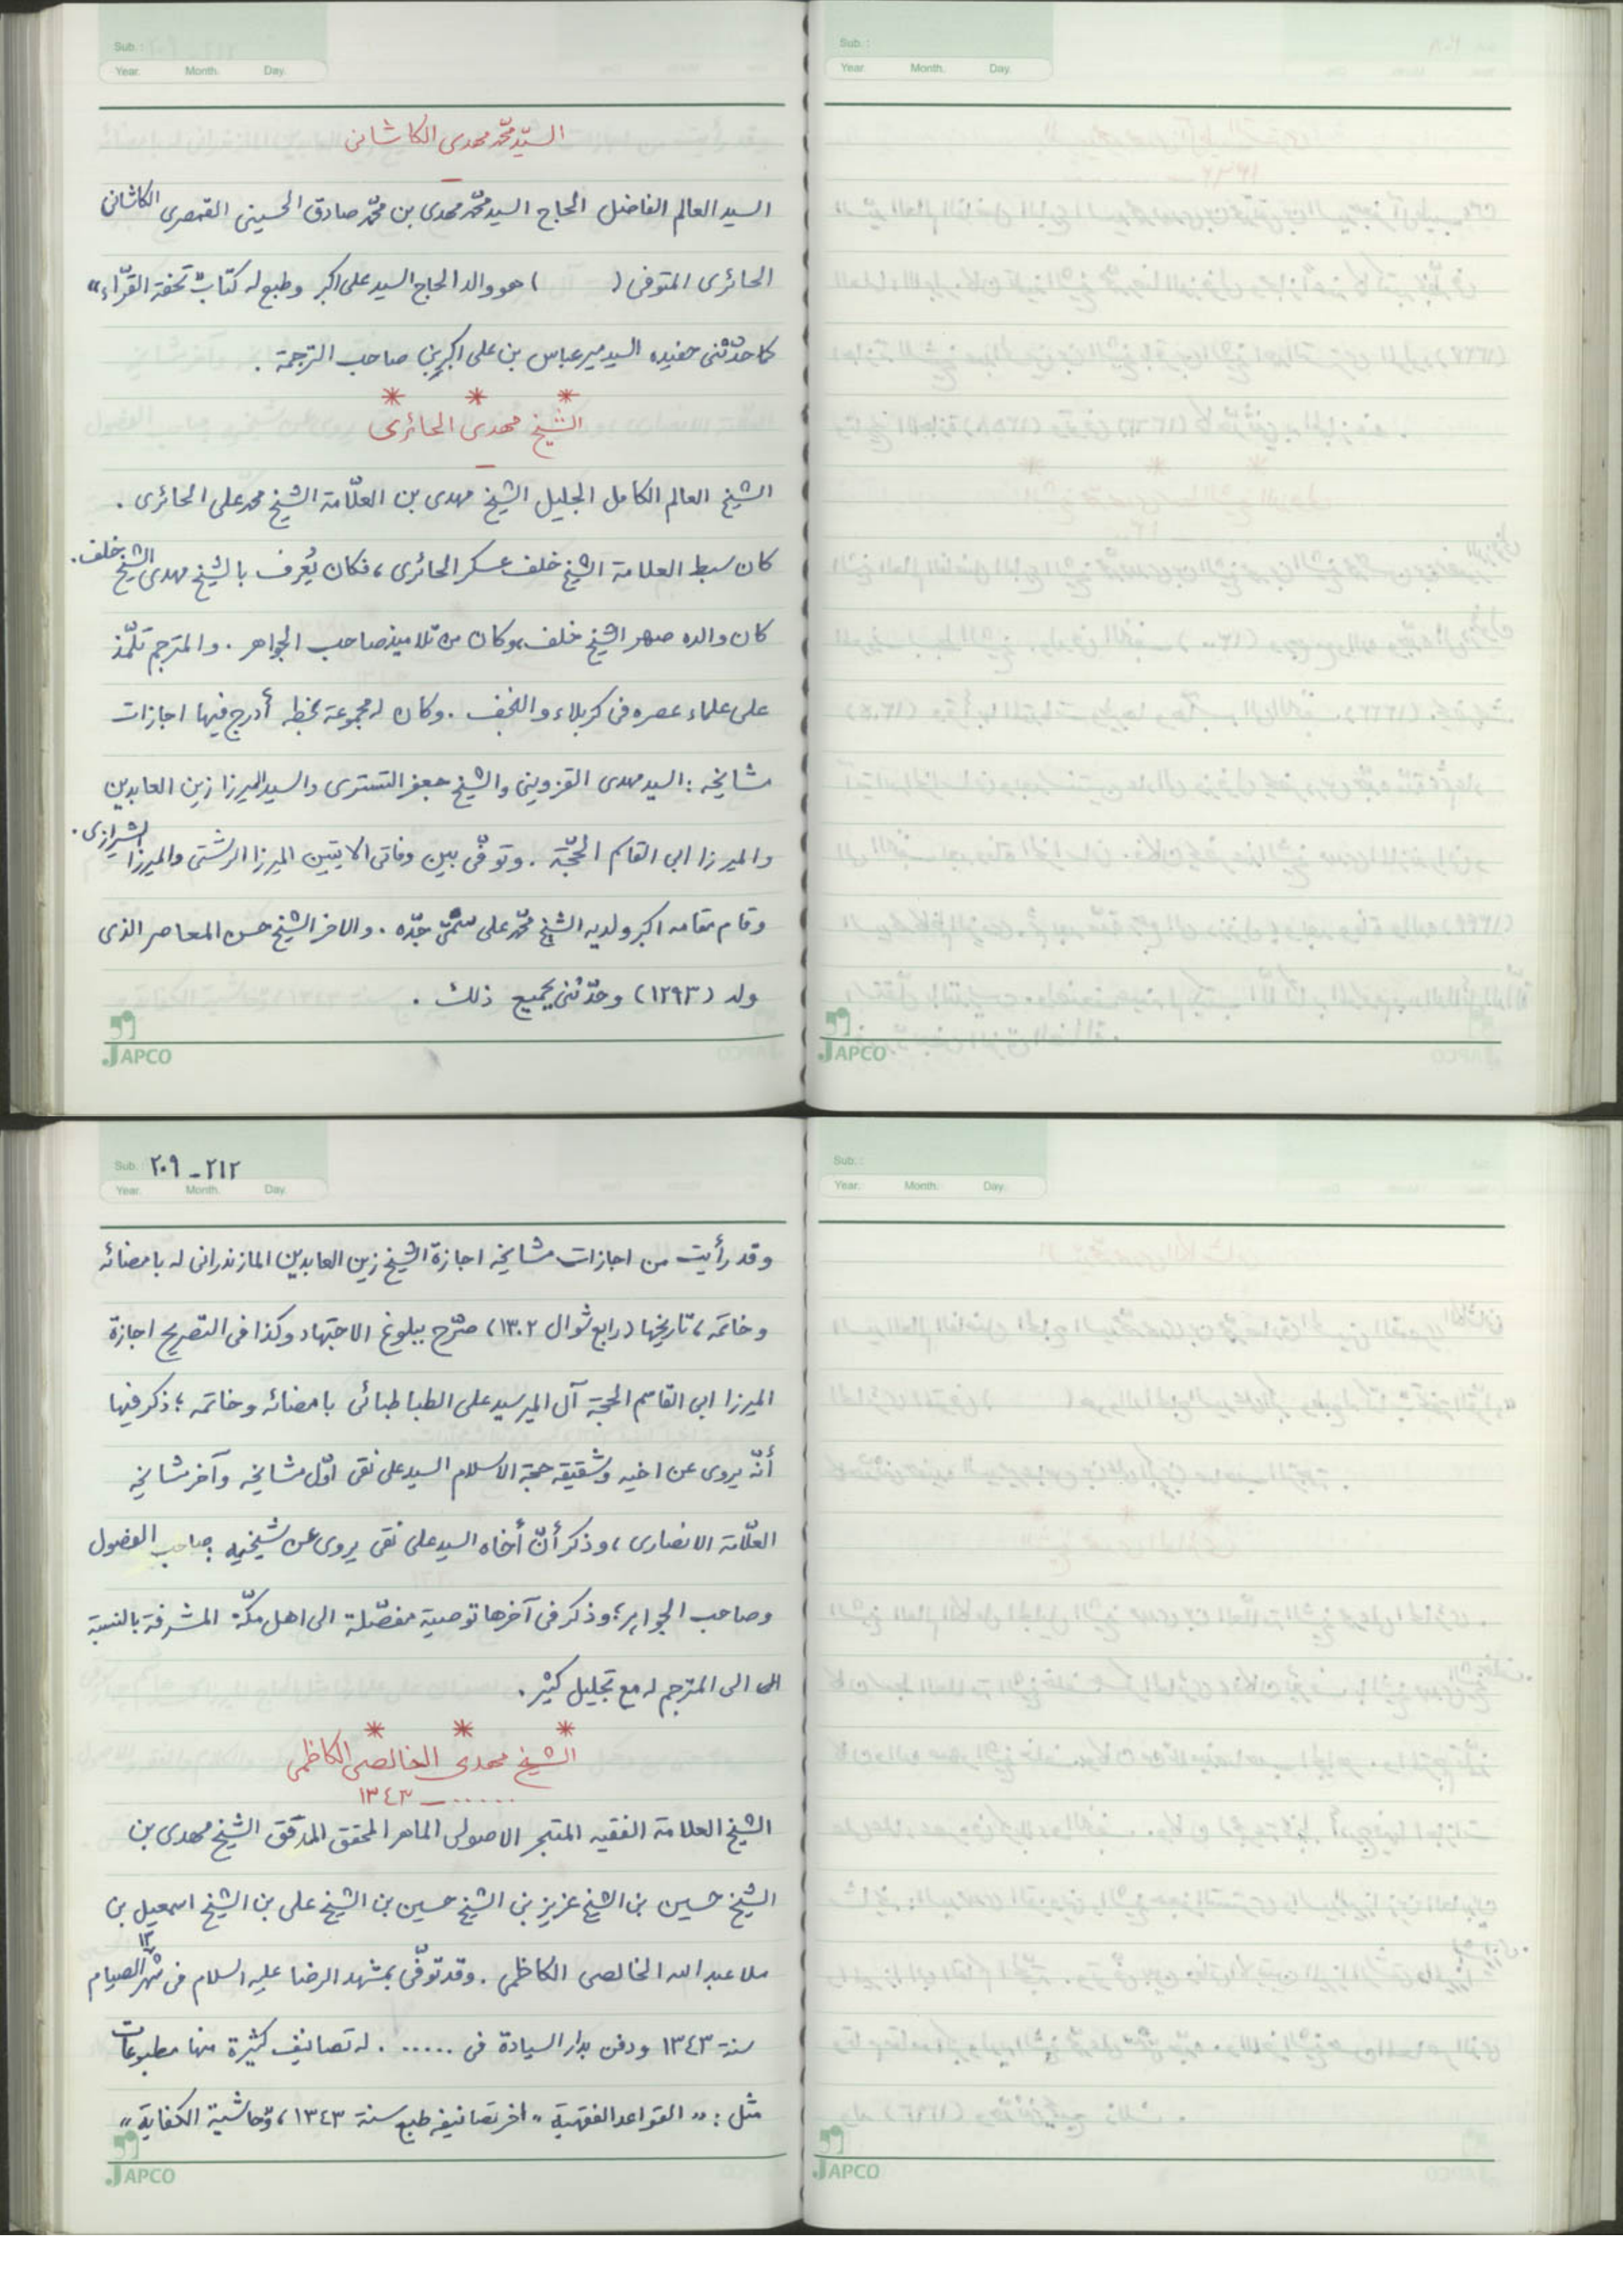 Sub. :
Year. Month. Day.
السيّد محمّد مهدى الكاشانى
السيد العالم الفاضل الحاج السيد محمّد مهدى بن محمّد صادق الحسينى القمصرى الكاشانى
الحائرى المتوفى ( ) هو والد الحاج السيد على اكبر وطبع له كتاب "تحفة القرّاء"
كما حدّثنى حفيده السيد مير عباس بن على اكبر بن صاحب الترجمة .
* * *
الشيخ مهدى الحائرى
الشيخ العالم الكامل الجليل الشيخ مهدى بن العلّامة الشيخ محمد على الحائرى .
كان سبط العلامة الشيخ خلف عسكر الحائرى ، فكان يُعرف بالشيخ مهدى الشيخ خلف .
كان والده صهر الشيخ خلف، وكان من تلاميذ صاحب الجواهر . والمترجم تلمّذ
على علماء عصره فى كربلاء والنجف . وكان له مجموعة بخطه أدرج فيها اجازات
مشايخه : السيد مهدى القزوينى والشيخ جعفر التسترى والسيد الميرزا زين العابدين
والميرزا ابى القاسم الحجّة . وتوفّى بين وفاتى الايتين الميرزا الرشتى والميرزا الشيرازى .
وقام مقامه اكبر ولديه الشيخ محمّد على سمّى جدّه . والاخر الشيخ حسن المعاصر الذى
ولد (١٢٩٣) وحدّثنى بجميع ذلك .
JAPCO
Sub. :
Year. Month. Day.
JAPCO
Sub. : ٢٠٩ - ٢١٢
Year. Month. Day.
وقد رأيت من اجازات مشايخه اجازة الشيخ زين العابدين المازندرانى له بامضائه
وخاتمه ، تاريخها (رابع شوال ١٣٠٢) صرّح ببلوغ الاجتهاد وكذا فى التصريح اجازة
الميرزا ابى القاسم الحجة آل المير سيد على الطباطبائى بامضائه وخاتمه ؛ ذكر فيها
أنّه يروى عن اخيه وشقيقه حجة الاسلام السيد على نقى اوّل مشايخه وآخر مشايخه
العلّامة الانصارى ، وذكر أنّ أخاه السيد على نقى يروى عن شيخيه صاحب الفصول
وصاحب الجواهر ؛ وذكر فى آخرها توصية مفصّلة الى اهل مكّة المشرفة بالنسبة
الى الى المترجم له مع تجليل كثير .
* * *
الشيخ مهدى الخالصى الكاظمى
...... — ١٣٤٣
الشيخ العلامة الفقيه المتبحر الاصولى الماهر المحقق المدقق الشيخ مهدى بن
الشيخ حسين بن الشيخ عزيز بن الشيخ حسين بن الشيخ على بن الشيخ اسمعيل بن
ملا عبد الله الخالصى الكاظمى . وقد توفّى بمشهد الرضا عليه السلام فى ١٢ شهر الصيام
سنة ١٣٤٣ ودفن بدار السيادة فى ..... . له تصانيف كثيرة منها مطبوعات
مثل : " القواعد الفقهية " اخر تصانيفه طبع سنة ١٣٤٣ ، و"حاشية الكفاية "
JAPCO
Sub. :
Year. Month. Day.
JAPCO